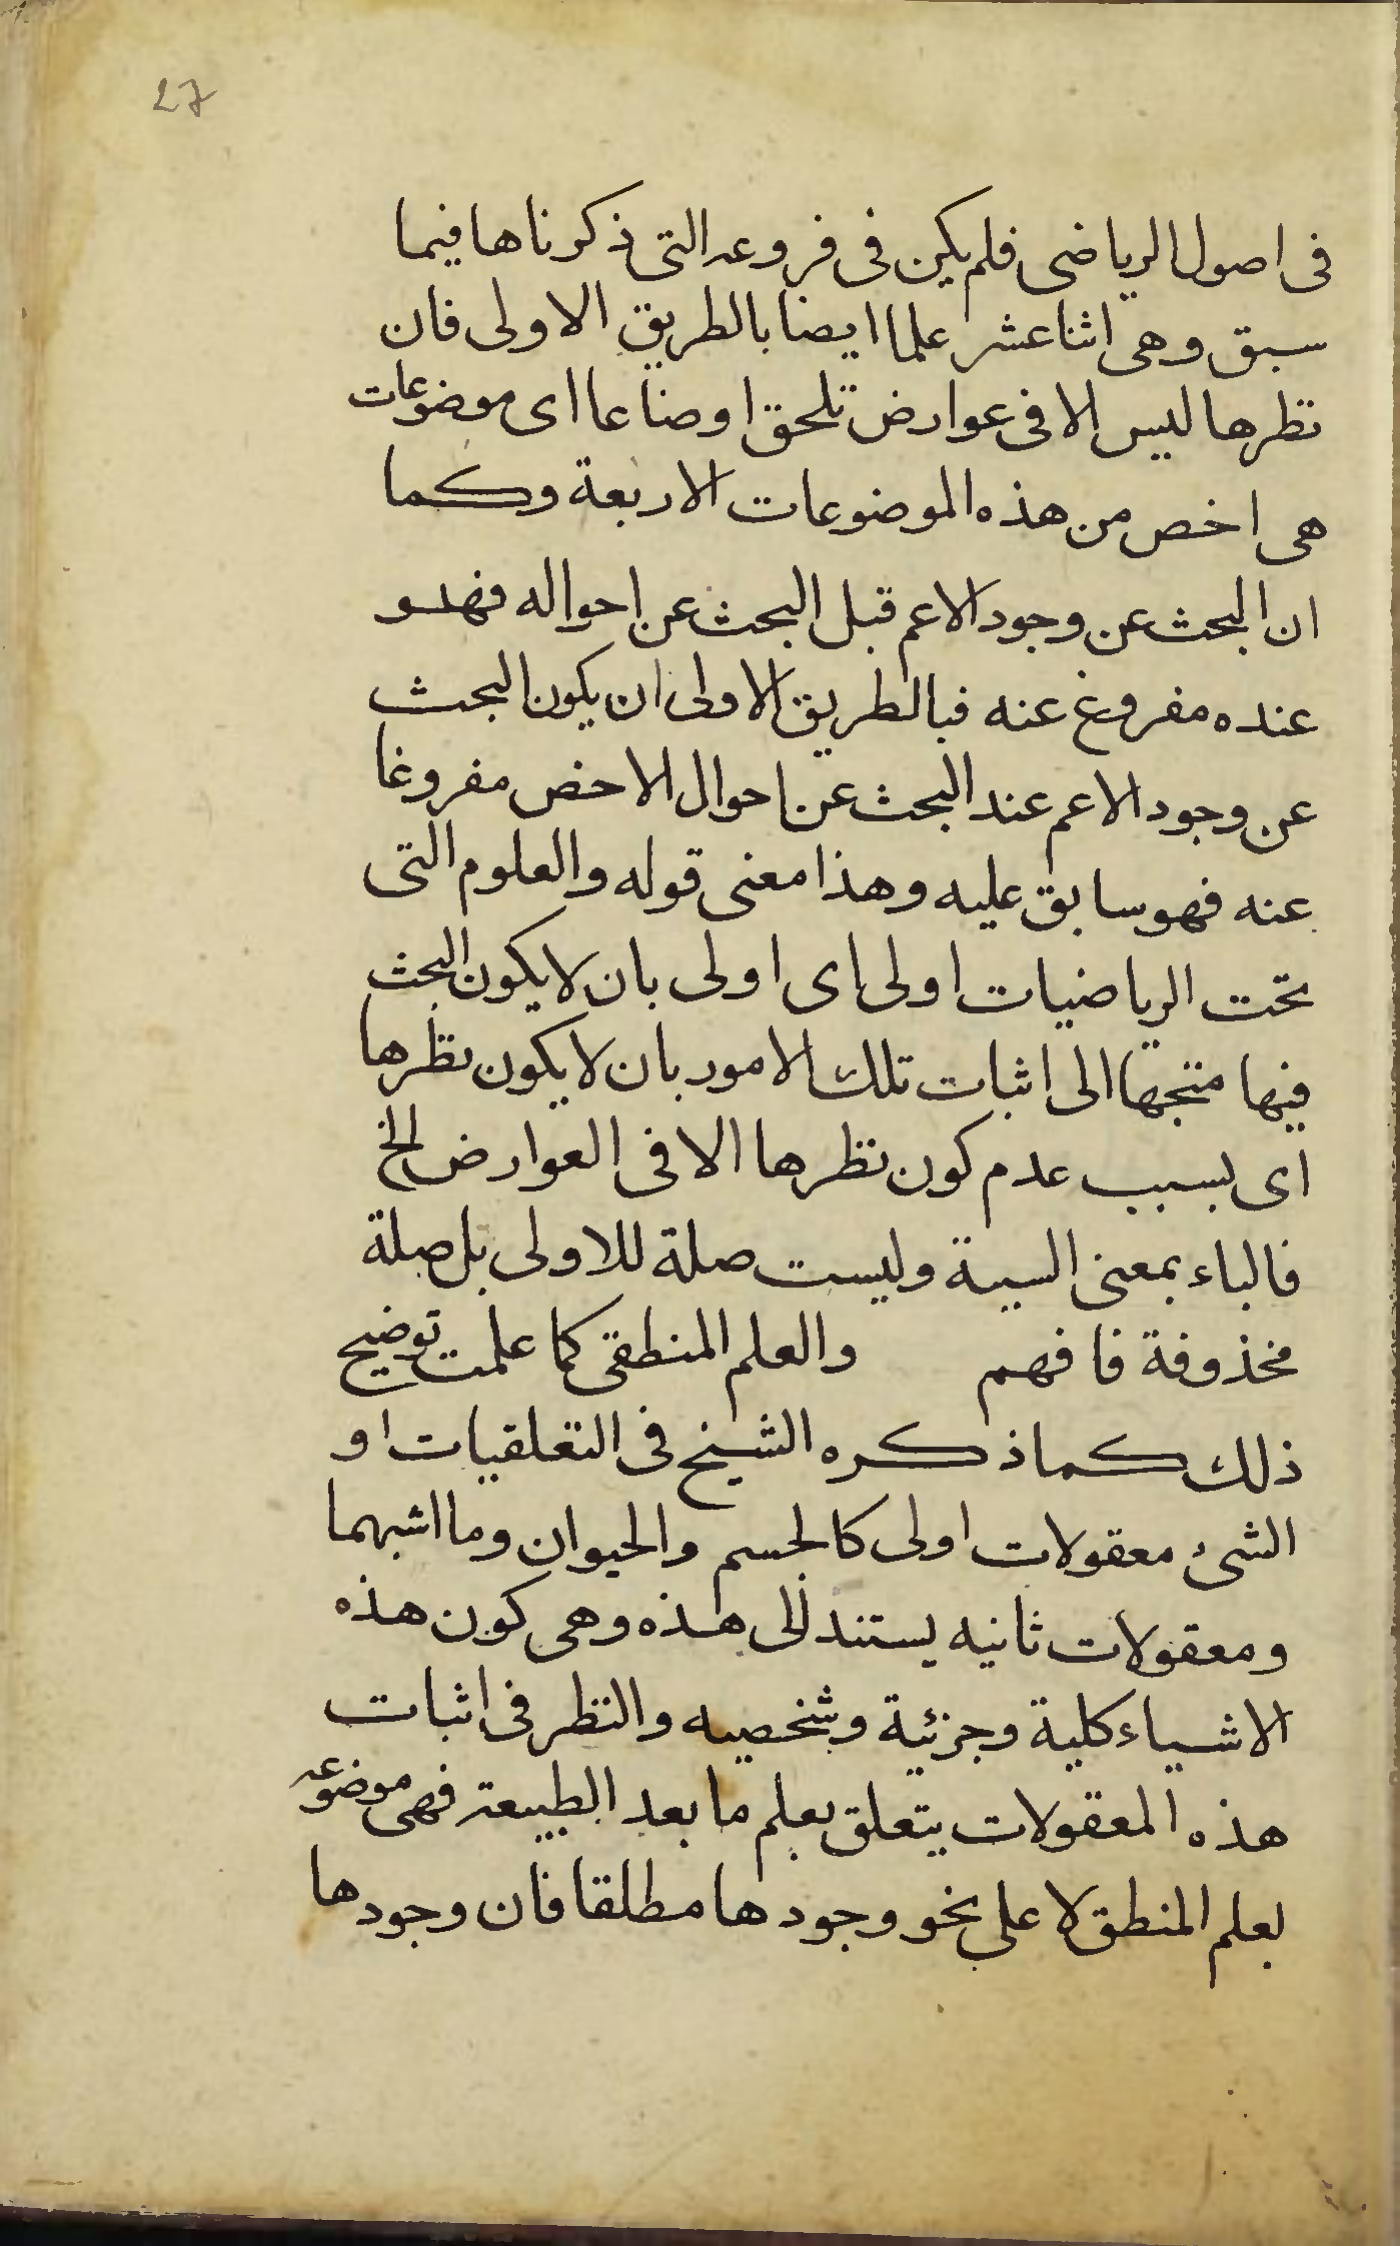 27
فى اصول الرياضى فلم يكن فى فروعه التى ذكرناها فيما
سبق وهى اثنا عشر علما ايضا بالطريق الاولى فان
نظرها ليس الا فى عوارض تلحق اوضاعا اى موضوعات
هى اخص من هذه الموضوعات الاربعة وكما
ان البحث عن وجود الاعم قبل البحث عن احواله فهو
عنده مفروغ عنه فبالطريق الاولى ان يكون البحث
عن وجود الاعم عند البحث عن احوال الاخص مفروغا
عنه فهو سابق عليه وهذا معنى قوله والعلوم التى
تحت الرياضيات اولى اى اولى بان لا يكون البحث
فيها متجها الى اثبات تلك الامور بان لا يكون نظرها
اى بسبب عدم كون نظرها الا فى العوارض الخ
فالباء بمعنى السببية وليست صلة للاولى بل صلة
مخذوفة فافهم والعلم المنطقى كما علمت توضيح
ذلك كما ذكره الشيخ فى التعلقيات او
الشئ معقولات اولى كالجسم والحيوان وما اشبهما
ومعقولات ثانيه يستند الى هذه وهى كون هذه
الاشياء كلية وجزئية وشخصيه والنظر فى اثبات
هذه المعقولات يتعلق بعلم ما بعد الطبيعة فهى موضوعه
لعلم المنطق لا على نحو وجودها مطلقا فان وجودها